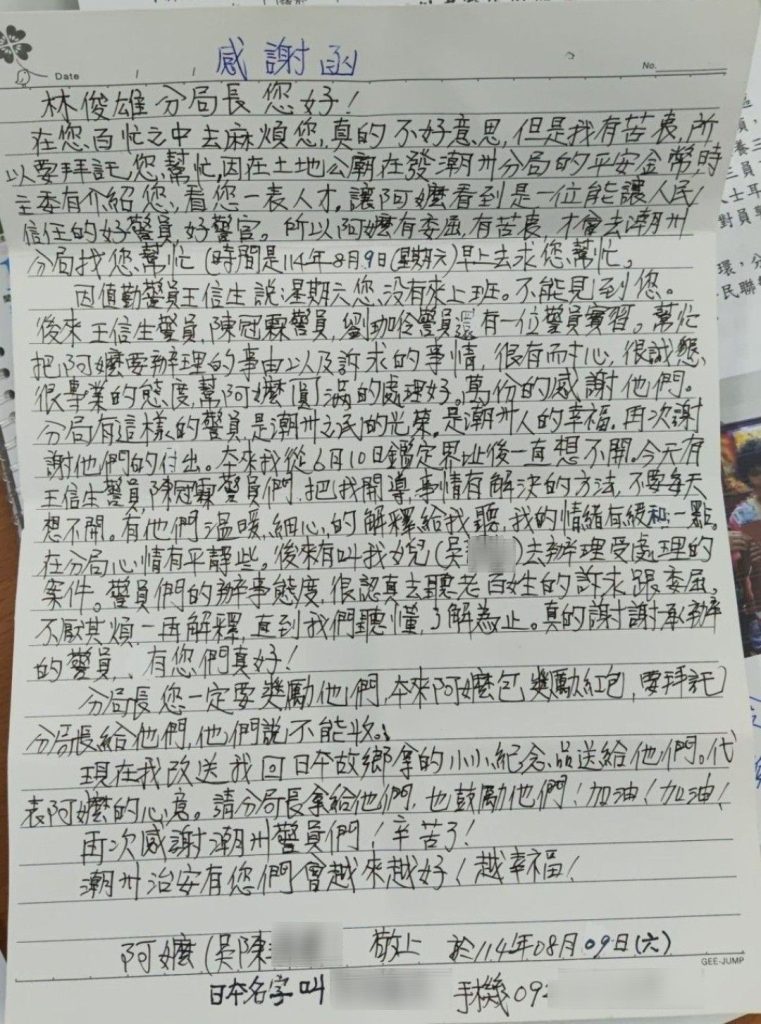 感謝函
Date / / No.
林俊雄分局長您好!
在您百忙之中去麻煩您,真的不好意思,但是我有苦衷,所
以要拜託您幫忙,因在土地公廟在發潮州分局的平安金幣時
主委有介紹您,看您一表人才。讓阿嬤看到是一位能讓人民
信任的好警員好警官。所以阿嬤有委屈,有苦衷,才會去潮州
分局找您幫忙(時間是114年8月9日(星期六)早上去求您幫忙。
因值勤警員王信生說:星期六您沒有來上班。不能見到您。
後來王信生警員,陳冠霖警員,劉珈伶警員還有一位警員實習。幫忙
把阿嬤要辦理的事由以及訴求的事情,很有耐心,很誠懇,
很專業的態度,幫阿嬤圓滿的處理好。萬份的感謝他們。
分局有這樣的警員是潮州之民的光榮。是潮州人的幸福。再次謝
謝他們的付出。本來我從6月10日鑑定界址後一直想不開。今天有
王信生警員,陳冠霖警員們,把我開導,事情有解決的方法,不要每天
想不開。有他們溫暖,細心,的解釋給我聽,我的情緒有緩和一點。
在分局心情有平靜些。後來有叫我女兒(吳 )去辦理受處理的
案件。警員們的辦事態度,很認真去聽老百姓的訴求跟委屈,
不厭其煩一再解釋,直到我們聽懂,了解為止。真的謝謝承辦
的警員、有您們真好!
分局長您一定要獎勵他們,本來阿嬤包獎勵紅包,要拜託
分局長給他們,他們說不能收。
現在我改送我回日本故鄉拿的小小紀念品送給他們。代
表阿嬤的心意。請分局長拿給他們,也鼓勵他們!加油!加油!
再次感謝潮州警員們!辛苦了!
潮州治安有您們會越來越好!越幸福!
阿嬤(吳陳 敬上 於114年08月09日(六)
GEE-JUMP
日本名字叫 手機09